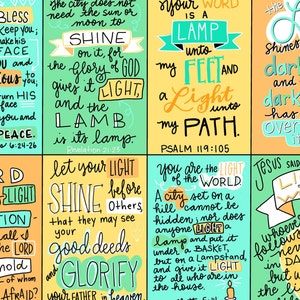 BLESS
KEEP you;
make his
FACE
you AND
ous to
you;
turn HIS
face
you and
PEACE.
6:24-26
The city does not
need the sun or
moon to
SHINE
on it, for
the GLORY of
GOD
gives it
LIGHT,
and the
LAMB
is its lamp.
Revelation 21:23
YOUR WORD
IS A
LAMP
unto
my
FEET AND
a Light
unto
my PATH.
PSALM 119:105
the
Shines
dark
and
dark
has
over
RD
LIGHT
TION
all I
the LORD
hold
of whom
Afraid?
let your LIGHT
SHINE before
others,
that they may see
your
good deeds
and
GLORIFY
your FATHER in heaven
You are the LIGHT
of the WORLD.
A city set on a
hill cannot be
hidden; nor does
anyone LIGHT a
lamp and put it
under a BASKET,
but on a Lampstand
and give its LIGHT
to all who are in
the house.
Jesus said
whoever
follows
never
in DA
but
the l